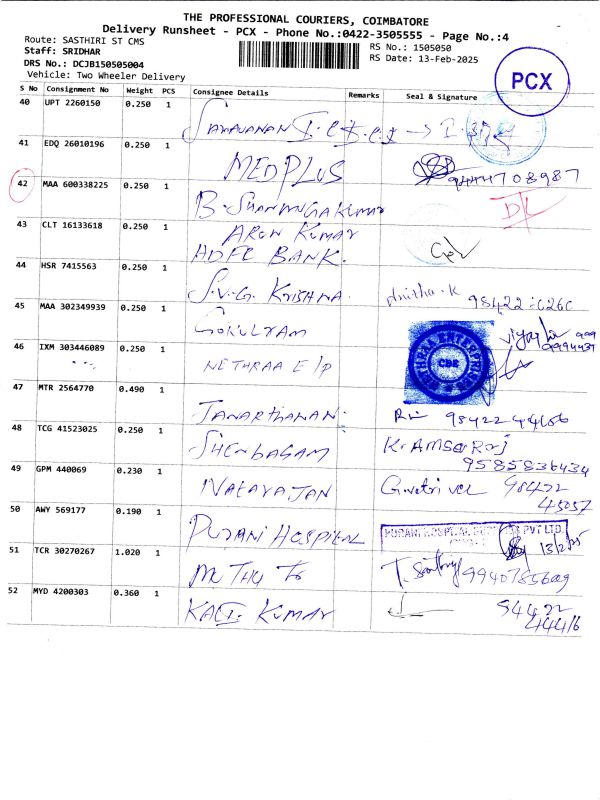 THE PROFESSIONAL COURIERS, COIMBATORE
Delivery Runsheet - PCX - Phone No.:0422-3505555 - Page No.:4
Route: SASTHIRI ST CMS
RS No.: 1505050
Staff: SRIDHAR
RS Date: 13-Feb-2025
DRS No.: DCJB150505004
Vehicle: Two Wheeler Delivery
PCX
S No Consignment No Weight PCS Consignee Details Remarks Seal & Signature
40 UPT 2260150 0.250 1
41 EDQ 26010196 0.250 1 MEDPLUS
42 MAA 600338225 0.250 1 B. Shanmugakumar
43 CLT 16133618 0.250 1 Arun Kumar
HDFC BANK.
44 HSR 7415563 0.250 1 S.V.G. Krishna Anitha.K
45 MAA 302349939 0.250 1 Gokulram
46 IXM 303446089 0.250 1 NETHRAA E/P
47 MTR 2564770 0.490 1 Janarthanan.
48 TCG 41523025 0.250 1 Shenbagam
9585836434
49 GPM 440069 0.230 1 Natarajan 98422
45057
50 AWY 569177 0.190 1 Purani Hospital PURANI HOSPITAL PVT LTD 13/2/25
51 TCR 30270267 1.020 1
52 MYD 4200303 0.360 1 Kali Kumar 94422
44416